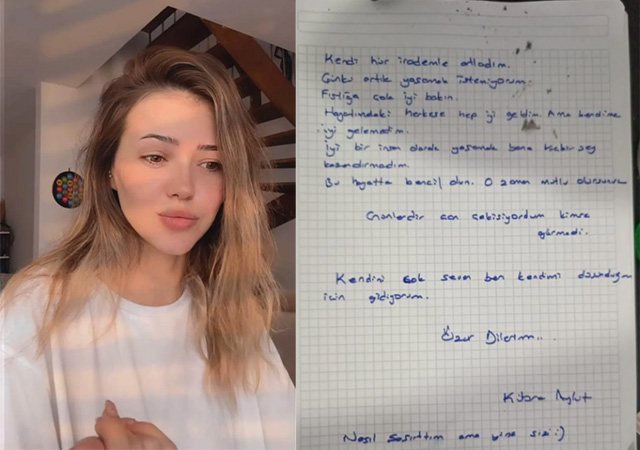 Kendi hür irademle atladım.
Çünkü artık yaşamak istemiyorum.
Fıstığa çok iyi bakın.
Hayatımdaki herkese hep iyi geldim. Ama kendime
iyi gelemedim.
İyi bir insan olarak yaşamak bana hiçbir şey
kazandırmadım.
Bu hayatta bencil olun. O zaman mutlu olursunuz
Günlerdir can çekişiyordum kimse
görmedi.
Kendimi çok seven ben kendimi düşündüğüm
için gidiyorum.
Özür Dilerim..
Kübra Aykut
Nasıl şaşırttım ama yine sizi :)